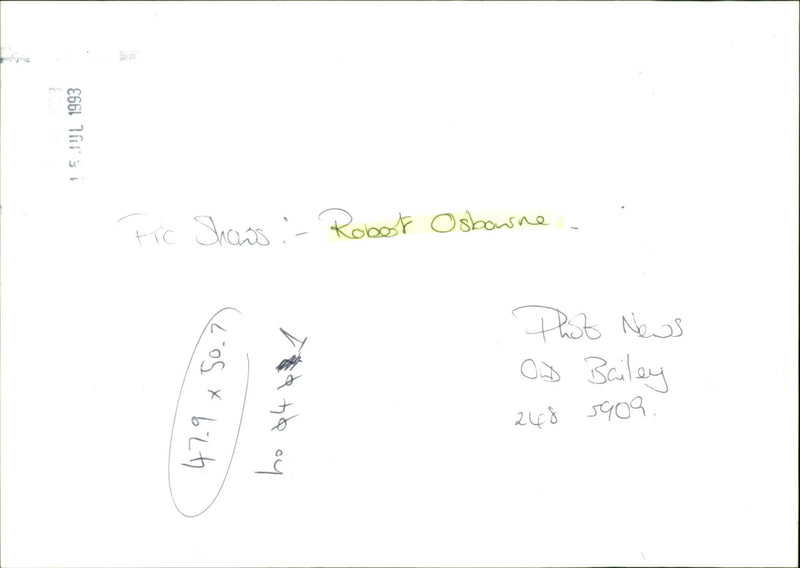 15 JUL 1993
Pic Shows:- Robert Osbourne -
47.9 x 50.7
Photo News
Old Bailey
248 5909.